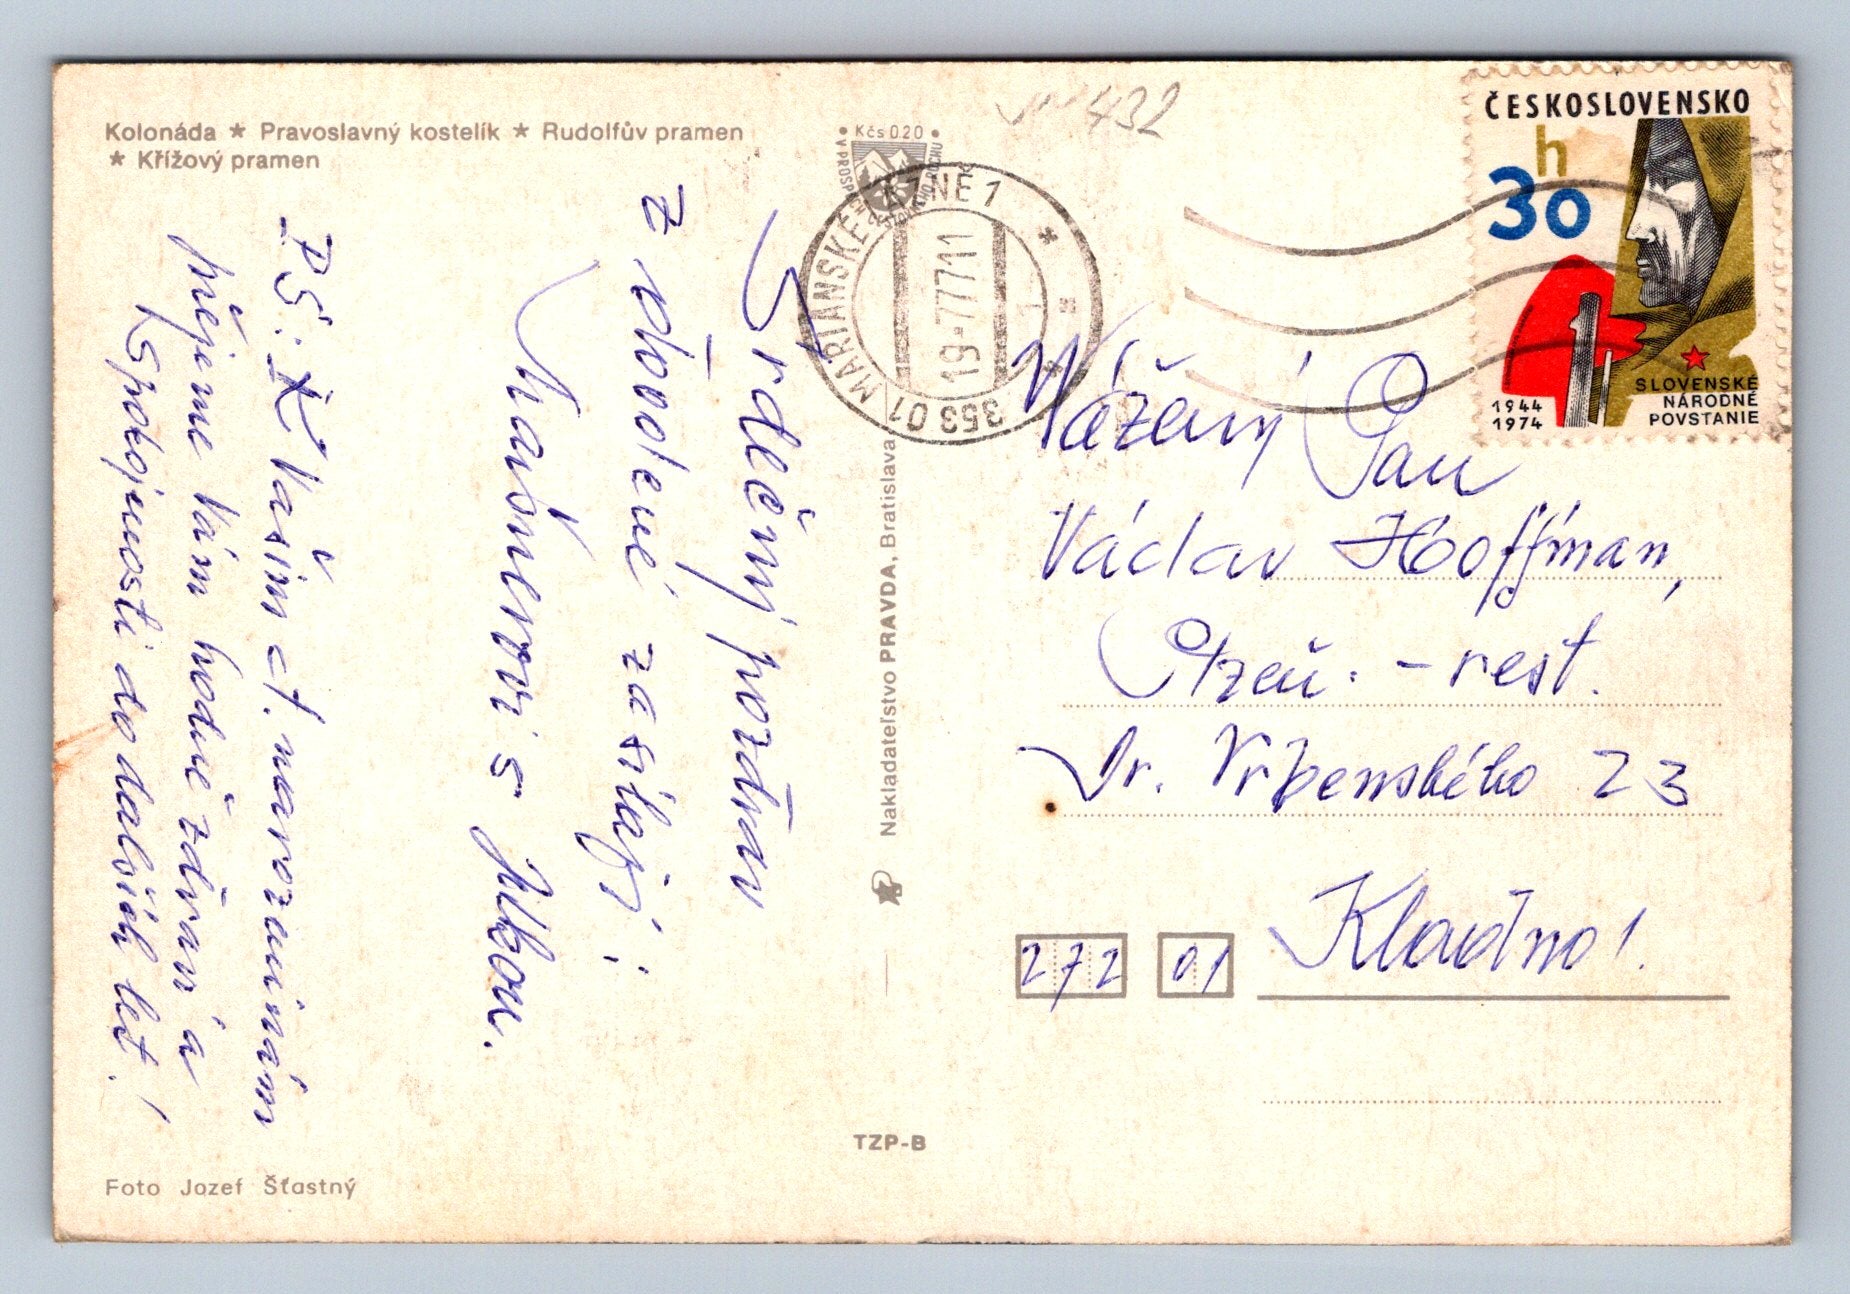 Kolonáda ★ Pravoslavný kostelík ★ Rudolfův pramen
★ Křížový pramen
Srdečný pozdrav
z dovolené zasílají:
s Jitkou.
PS: K Vašim narozeninám
přejeme Vám hodně zdraví a
Spokojnosti do dalších let!
Foto Jozef Šťastný
Kčs 0.20
Nakladateľstvo PRAVDA, Bratislava
TZP-B
MARIÁNSKÉ LÁZNĚ 1
19.-7.77 11
353 01
432
ČESKOSLOVENSKO
30 h
1944
1974
SLOVENSKÉ
NÁRODNÉ
POVSTANIE
Vážený Pan
Václav Hooffman,
Plzeň. - rest.
Dr. Vrbenského 23
272 01 Kladno 1.